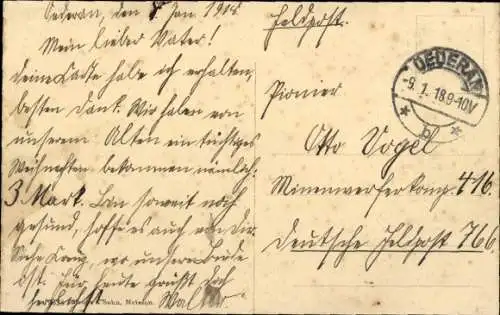 Oederan, den 8. Jan 1918
Mein lieber Vater!
Deine Karte habe ich erhalten,
besten Dank. Wir haben von
unserem Alten ein tüchtiges
Weihnachten bekommen nämlich:
3 Mark. Bin soweit noch
gesund, hoffe es auch von Dir.
wo unsere Bude
ist. Für heute grüßt Dich
herzlichst Walter.
Sohn, Meissen.
Feldpost.
OEDERAN
-9.1.18.9-10V
* b *
Pionier
Otto Vogel
Minenwerferkomp. 416.
Deutsche Feldpost 766.